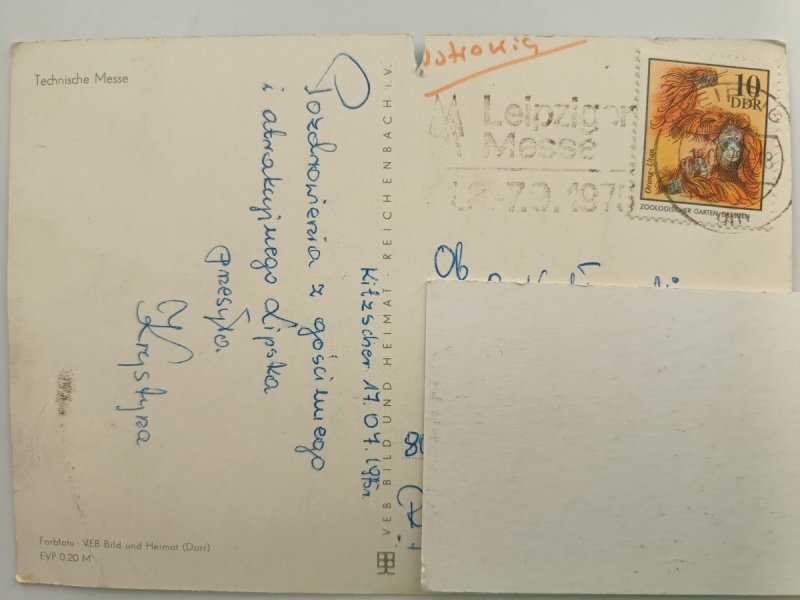 Technische Messe
Pozdrowienia z gościnnego
i atrakcyjnego Lipska
przesyła
Krystyna
Kitzscher 17.07.1975r.
Farbfoto: VEB Bild und Heimat (Darr)
EVP 0.20 M
VEB BILD UND HEIMAT · REICHENBACH i. V.
Leipziger
Messe
7.9.1975
10
DDR
Orang-Utan
ZOOLOGISCHER GARTEN DRESDEN